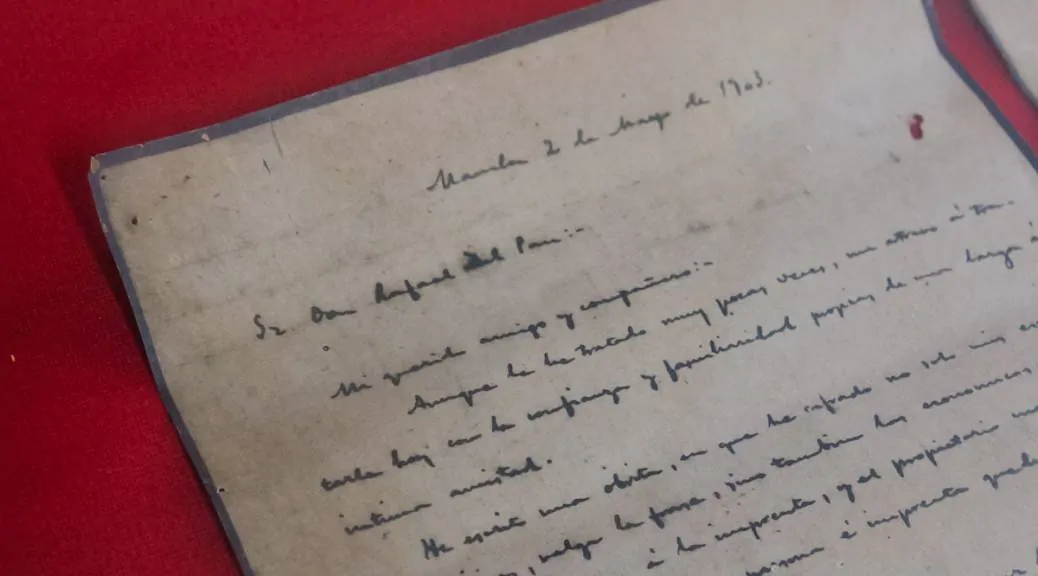 Manila 2 de Mayo de 1903.
Sr Don Rafael del Pan:-
Mi querido amigo y compañero:-
Aunque le he tratado muy pocas veces, me atrevo á tra-
tarle hoy con la confianza y familiaridad propias de una larga é
íntima amistad.
He escrito una obrita, en que he cifrado no solo mis
valga la frase, sino tambien las economías,
á la imprenta, y el propietario
á imprenta